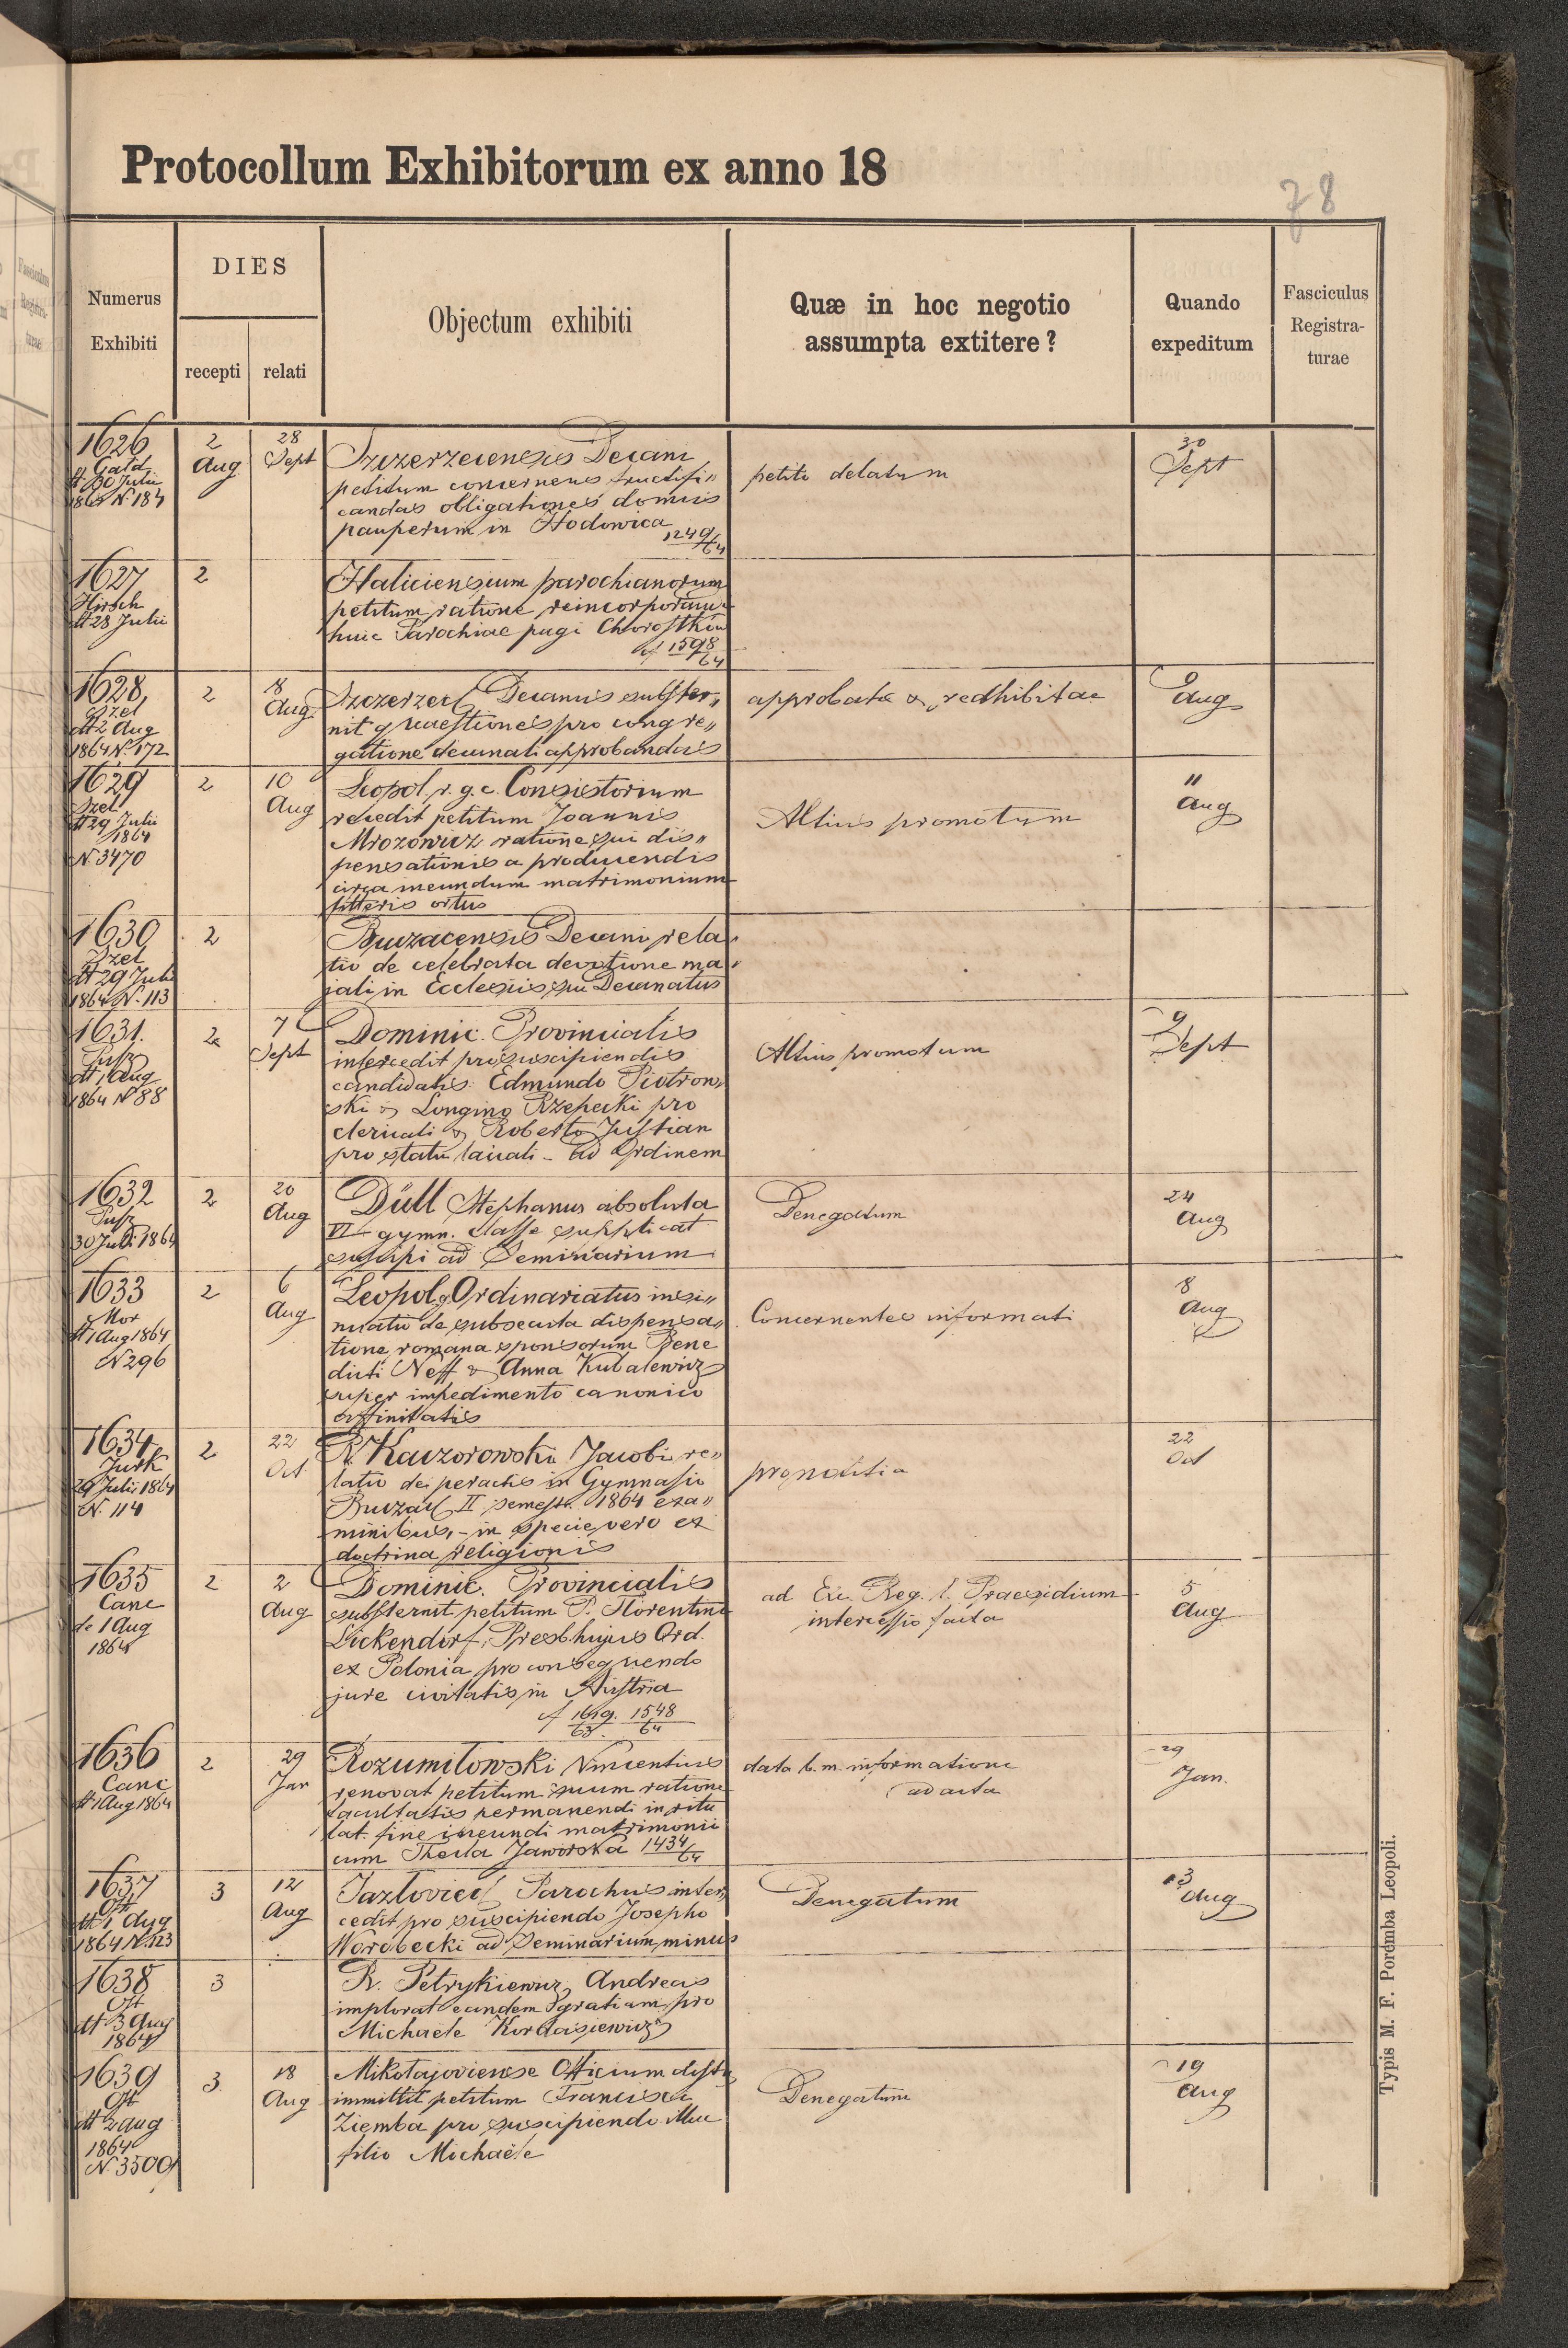 Protocollum Exhibitorum ex anno 18
78
Numerus
Exhibiti
DIES
recepti
relati
Objectum exhibiti
Quæ in hoc negotio
assumpta extitere?
Quando
expeditum
Fasciculus
Registra-
turae
1626
dt 30 Julii
1864 N. 184
2
Aug
28
Sept
Szczerzecensis Decani
petitum concernens fructifi„
candas obligationes domus
pauperum in Hodowica
1249/64
petito delatum
30
Sept
1627
Hirsch
dt 28 Julii
2
Haliciensium parochianorum
petitum ratione reincorporan
huic Parochiae pagi Chorostków
cf 1598/64
1628
Szel
dt 2 Aug
1864 N. 172
2
8
Aug
Szczerzec Decanus subster„
nit quaestiones pro congre„
gatione decanali approbandas
approbatae & redhibitae
9
Aug
1629
Szel
dt 29 Julii
1864
N. 3470
2
10
Aug
Leopol. r. g. c. Consistorium
recedit petitum Joannis
Mrozowicz ratione sui dis„
pensationis a producendis
circa ineundum matrimonium
litteris ortus
Altius promotum
11
Aug
1630
Szel
dt 29 Julii
1864 N. 113
2
Buczacensis Decani rela„
tio de celebrata devotione ma„
jali in Ecclesiis sui Decanatus
1631.
dt 1 Aug
1864 N 88
2
7
Sept
Dominic. Provincialis
intercedit pro suscipiendis
candidatis: Edmundo Piotrow„
ski & Longino Rzepecki pro
clericali & Roberto Justian
pro statu laicali - ad Ordinem
Altius promotum
9
Sept
1632
30 Juli 1864
2
20
Aug
Düll Stephanus absoluta
VI gymn. classe supplicat
suscipi ad Seminarium
Denegatum
24
Aug
1633
Mor
dt 1 Aug 1864
N 296
2
6
Aug
Leopol. g. Ordinariatus insi„
nuatio de subsecuta dispensa„
tione romana sponsorum Bene
dicti Neff & Anna Kubalewicz
super impedimento canonico
affinitatis
Concernentes informati
8
Aug
1634
Jurk
29 Julii 1864
N. 114
2
22
Oct
R. Kaczorowski Jacobi re„
latio de peractis in Gymnasio
Buczacz II semestr. 1864 exa„
minibus, - in specie vero ex
doctrina religionis
pro notitia
22
Oct
1635
Canc
de 1 Aug
1864
2
2
Aug
Dominic. Provincialis
substernit petitum P. Florentini
Lickendorf, Presb. hujus Ord.
ex Polonia pro consequendo
jure civitatis in Austria
cf 1619/63. 1548/64
ad Exc. Reg. l. Praesidium
intercessio facta
5
Aug
1636
Canc
dt 1 Aug 1864
2
29
Jan
Rozumilowski Vincentius
renovat petitum suum ratione
facultatis permanendi in ritu
lat. fine ineundi matrimonii
cum Thecla Jaworska 1434/64
data b. m. informatione
ad acta
29
Jan.
1637
Oft
dt 1 Aug
1864 N. 123
3
12
Aug
Jazloviec Parochus inter„
cedit pro suscipiendo Josepho
Worobecki ad Seminarium minus
Denegatum
13
Aug
1638
Oft
dt 3 Aug
1864
3
R. Petrykiewicz Andreas
implorat eandem gratiam pro
Michaele Kordasiewicz
1639
Oft
dt 2 Aug
1864
N. 3500
3
18
Aug
Mikolajoviense Officium distr.
immittit petitum Francisci
Ziemba pro suscipiendo illius
filio Michaële
Denegatum
19
Aug
Typis M. F. Poremba Leopoli.